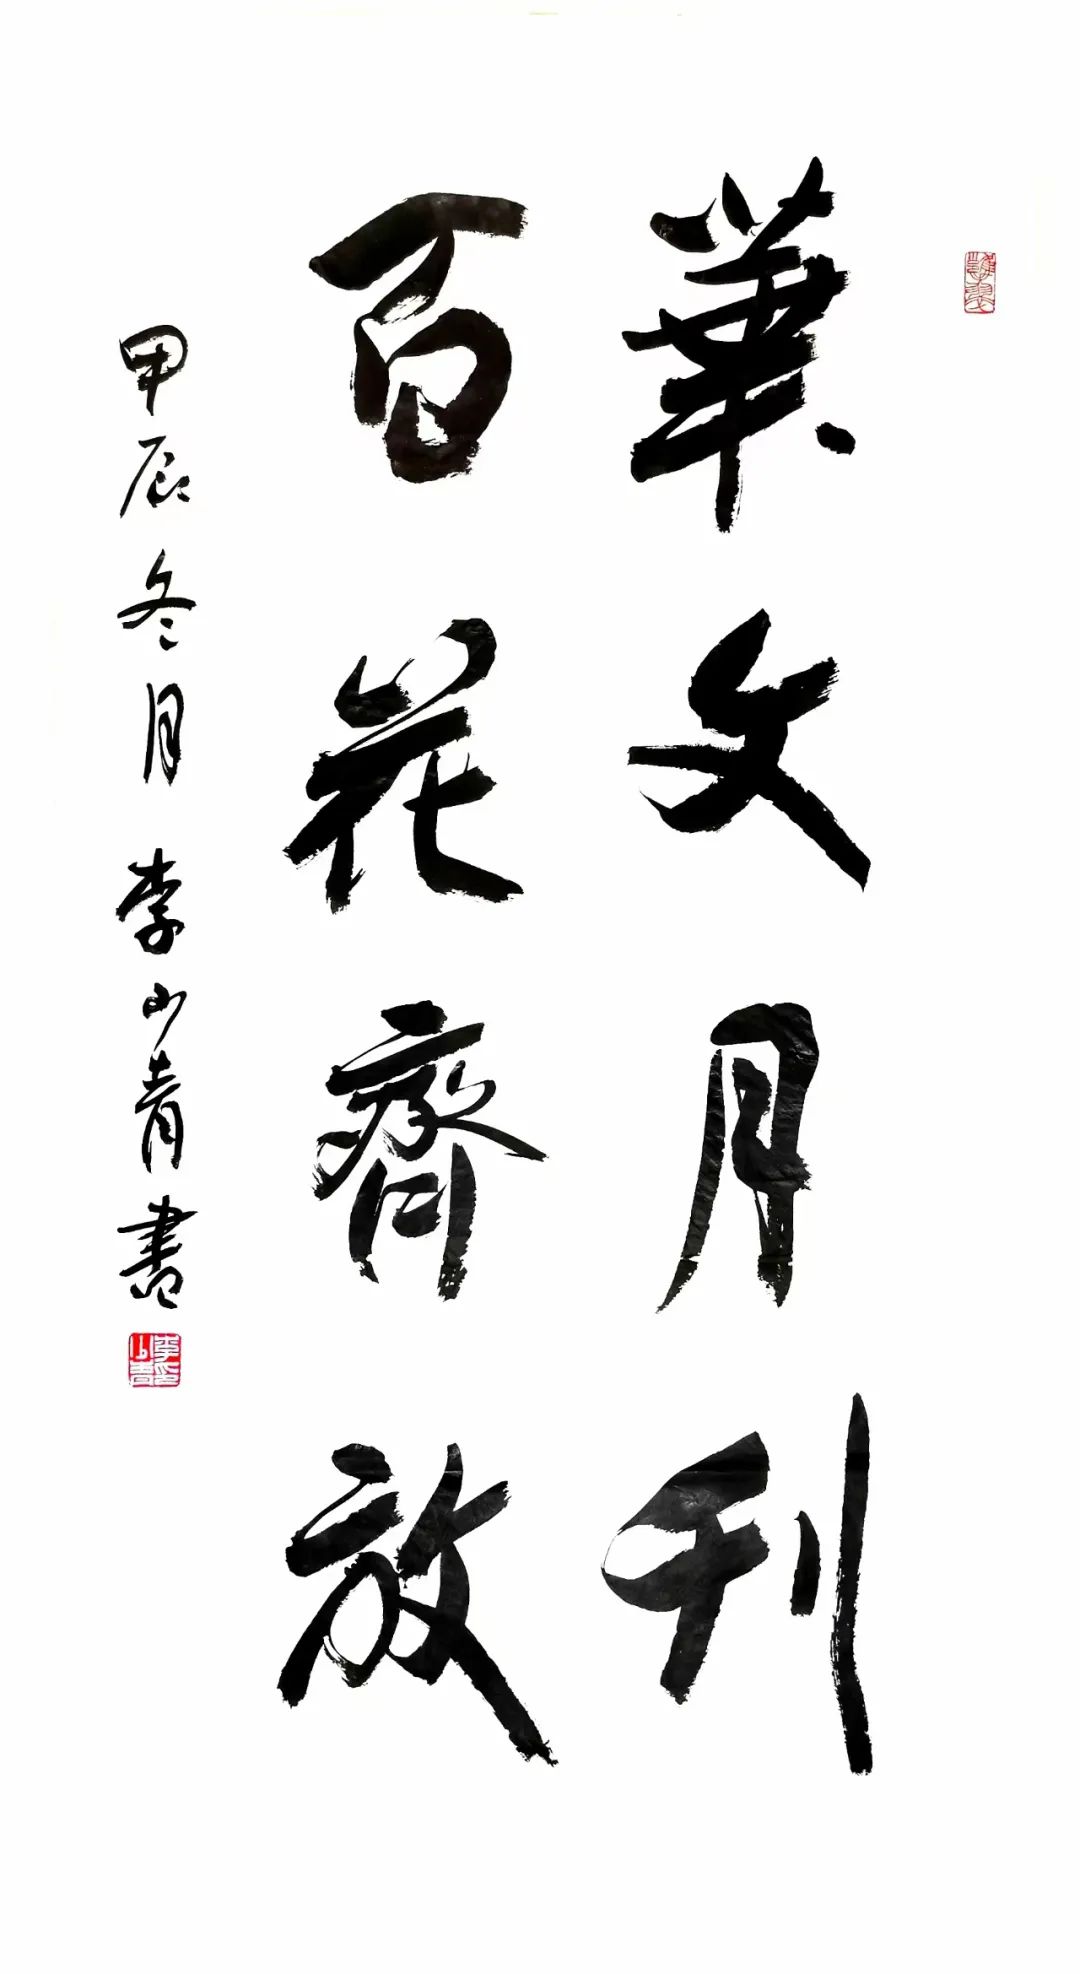 華文月刊
百花齊放
甲辰冬月 李山青書
李山青印